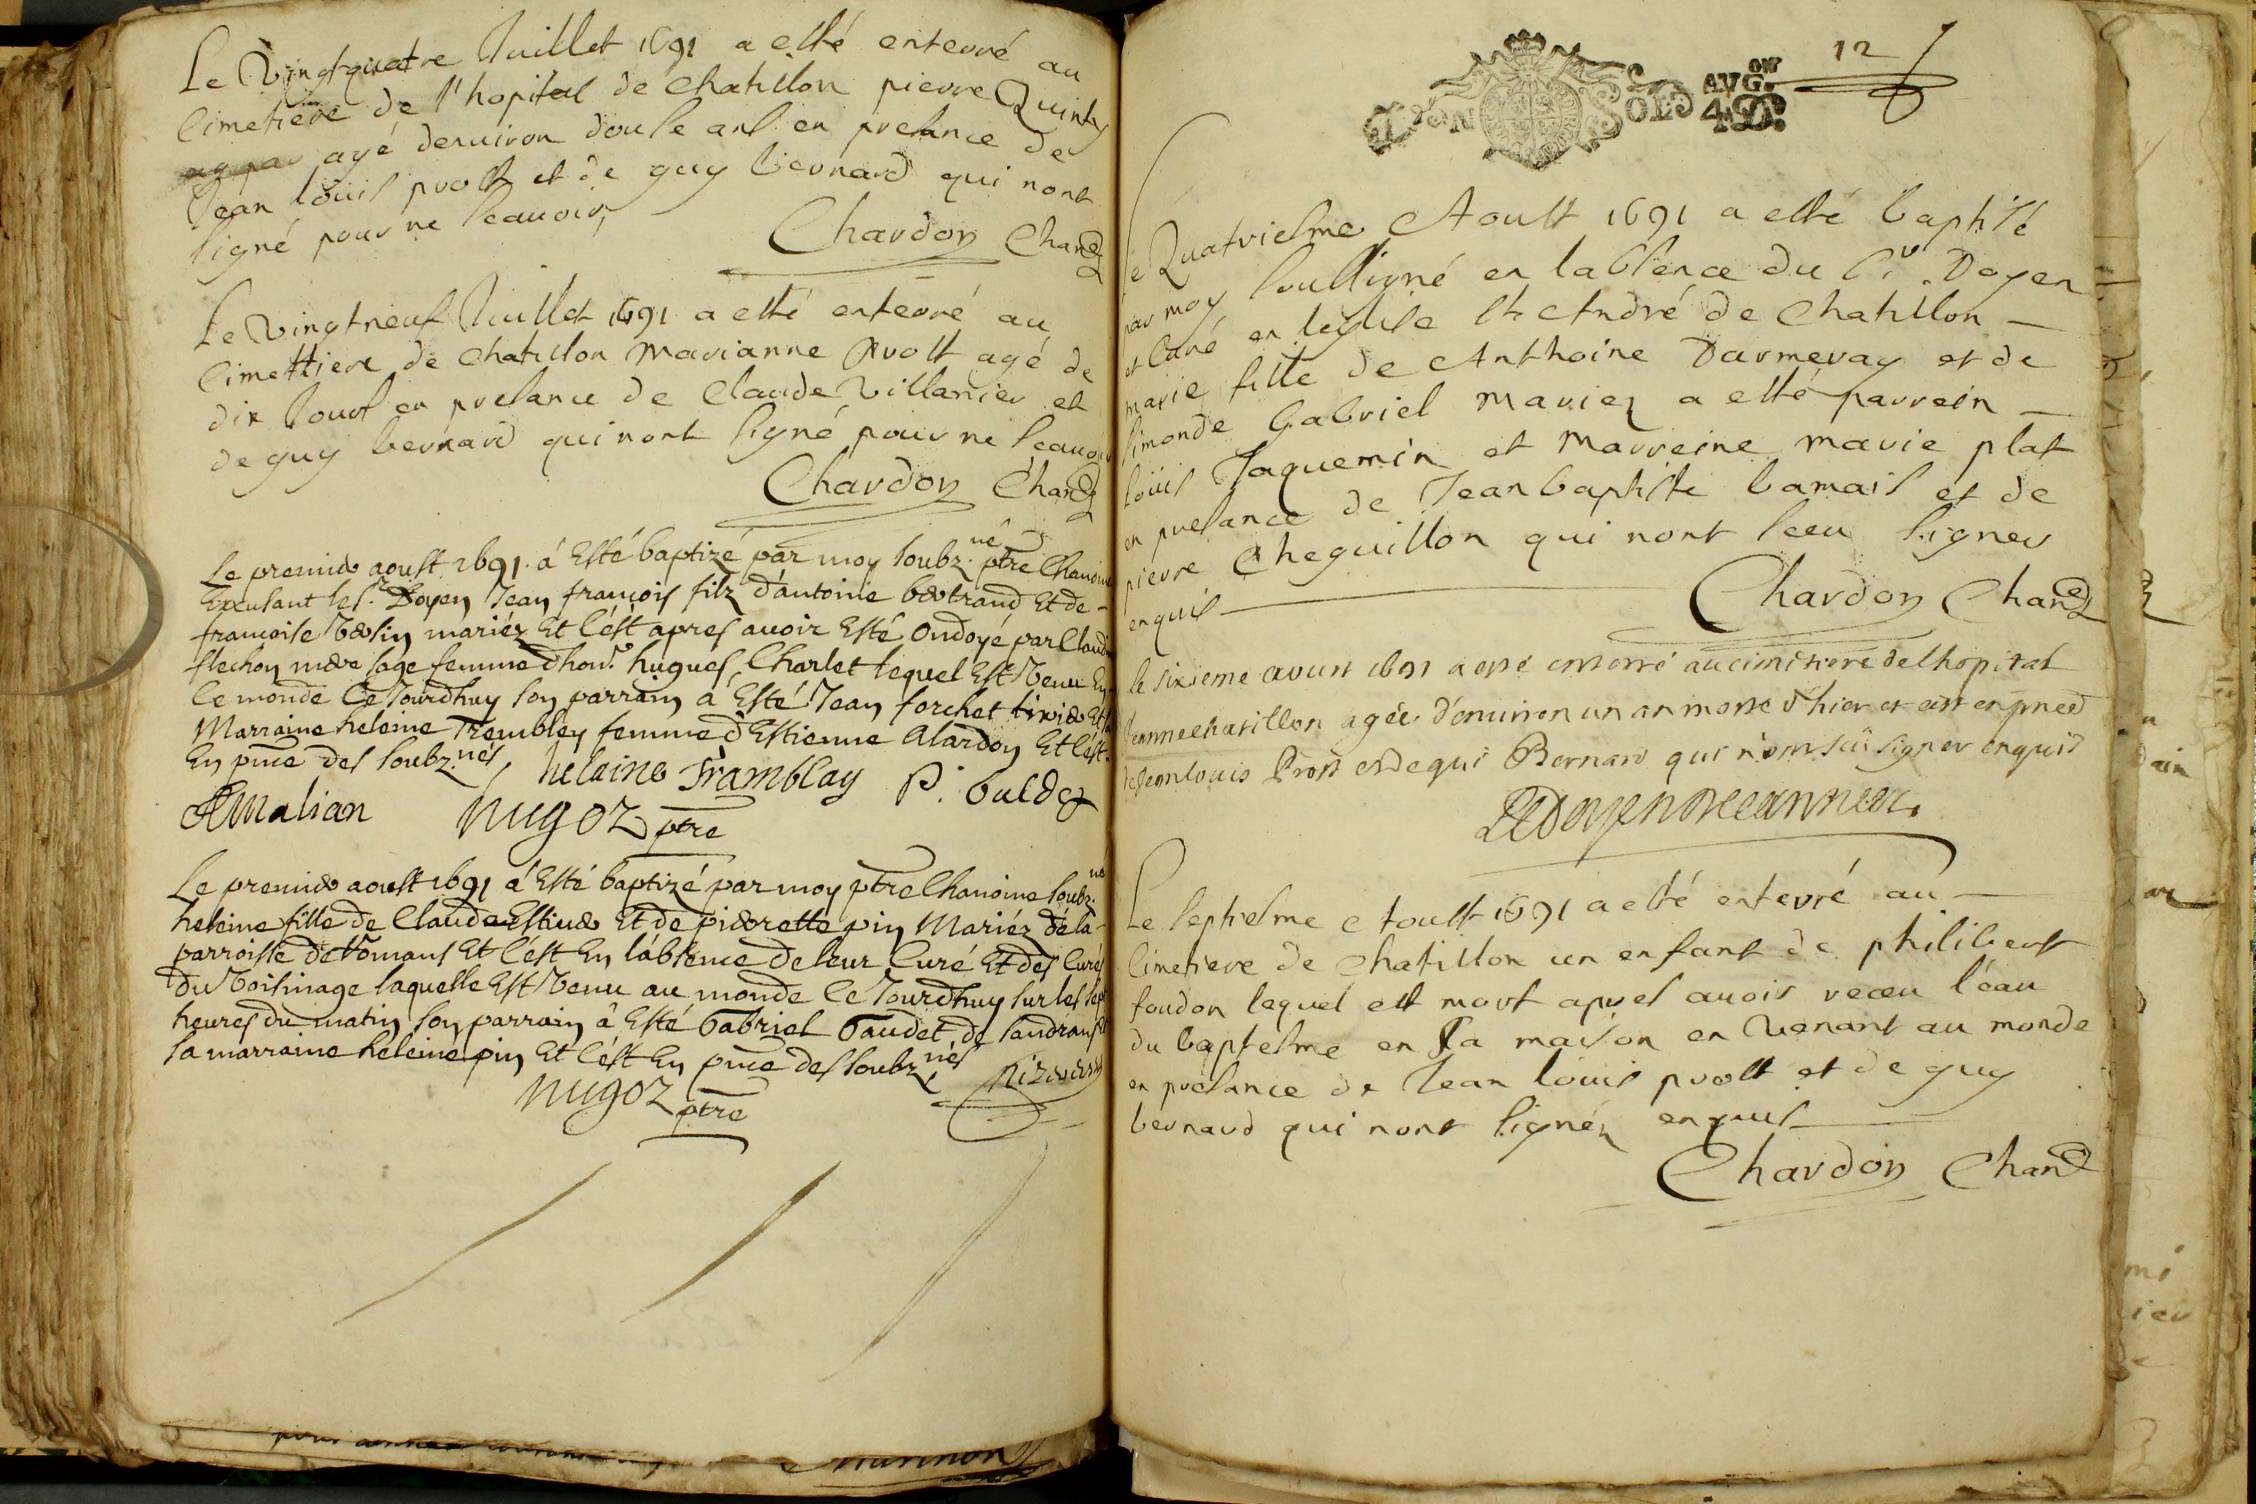 Le Vingt quatre Juillet 1691 a esté enterré au
Cimetiere de l'hopital de Chatillon pierre Quinty
agé denuiron douse ans en presance de
Jean loüis prost et de guy bernard qui nont
signé pour ne scauoir,
Chardon Chane
Le Vingtneuf Juillet 1691 a esté enterré au
Cimettiere de Chatillon Marianne Prost agé de
dix Jours en presance de Claude Villanier et
de guy bernard qui nont signé pour ne scauoir
Chardon Chane
Le premier aoust 1691 á Esté baptizé par moy soubz.né ptre Chanoine
Excusant le Sr. Doyen Jean françois filz d'antoine bertrand Et de -
francoise Voysin mariéz Et c'est apres auoir Esté Ondoyé par Claudine
flechon mere sage femme d'honr. hugues Charlet lequel Est Venu En
le monde ce Jourdhuy son parrain á Esté Jean forchet tixier Et sa
Marraine heleine Trembley femme d'Estienne Alardon Et c'est
En pnce des soubz.nés, helaine Tramblay P. buldez
AMalian nugoz ptre
Le premier aoust 1691 á Esté baptizé par moy ptre Chanoine soubz.né
heleine fille de Claude Estiuer Et de pierrette pin Mariéz dela-
parroisse de Romans Et c'est En l'absence de leur Curé Et des Curés
du Voisinage laquelle Est Venu au monde ce Jourdhuy sur les sept
heures du matin son parrain â Esté Gabriel Gaudet de Sandrans Et
sa marraine heleine pin Et c'est En pnce des soubz.nés
nugoz ptre
12
LYON SOLS AVG.ON 4D.
le Quatriesme Aoust 1691 a esté baptisé
par moy soussigné en labsence du Sr. Doyen
et Curé en leglise St André de Chatillon —
marie fille de Anthoine Darmeray et de
simonde Gabriel mariez a esté parrein —
loüis Jaquemin et marreine marie plat
en presance de Jean baptiste bamais et de
pierre Cheguillon qui nont sceu signer
enquis —
Chardon Chane
le sixieme avust 1691 a esté enterré au cimetiere de lhopital
Jeanne chatillon agée d'enuiron un an morte d'hier et cest en pnce
de Jean louis Prost et de gui Bernard qui n'ont sçu signer enquis
Le Septiesme Aoust 1691 a esté enterré au —
Cimetiere de Chatillon un enfant de philibert
foudon lequel est mort apres auoir receu l'éau
du baptesme en sa maison en Venant au monde
en presance de Jean loüis prost et de guy
bernard qui nont signéz enquis
Chardon Chane